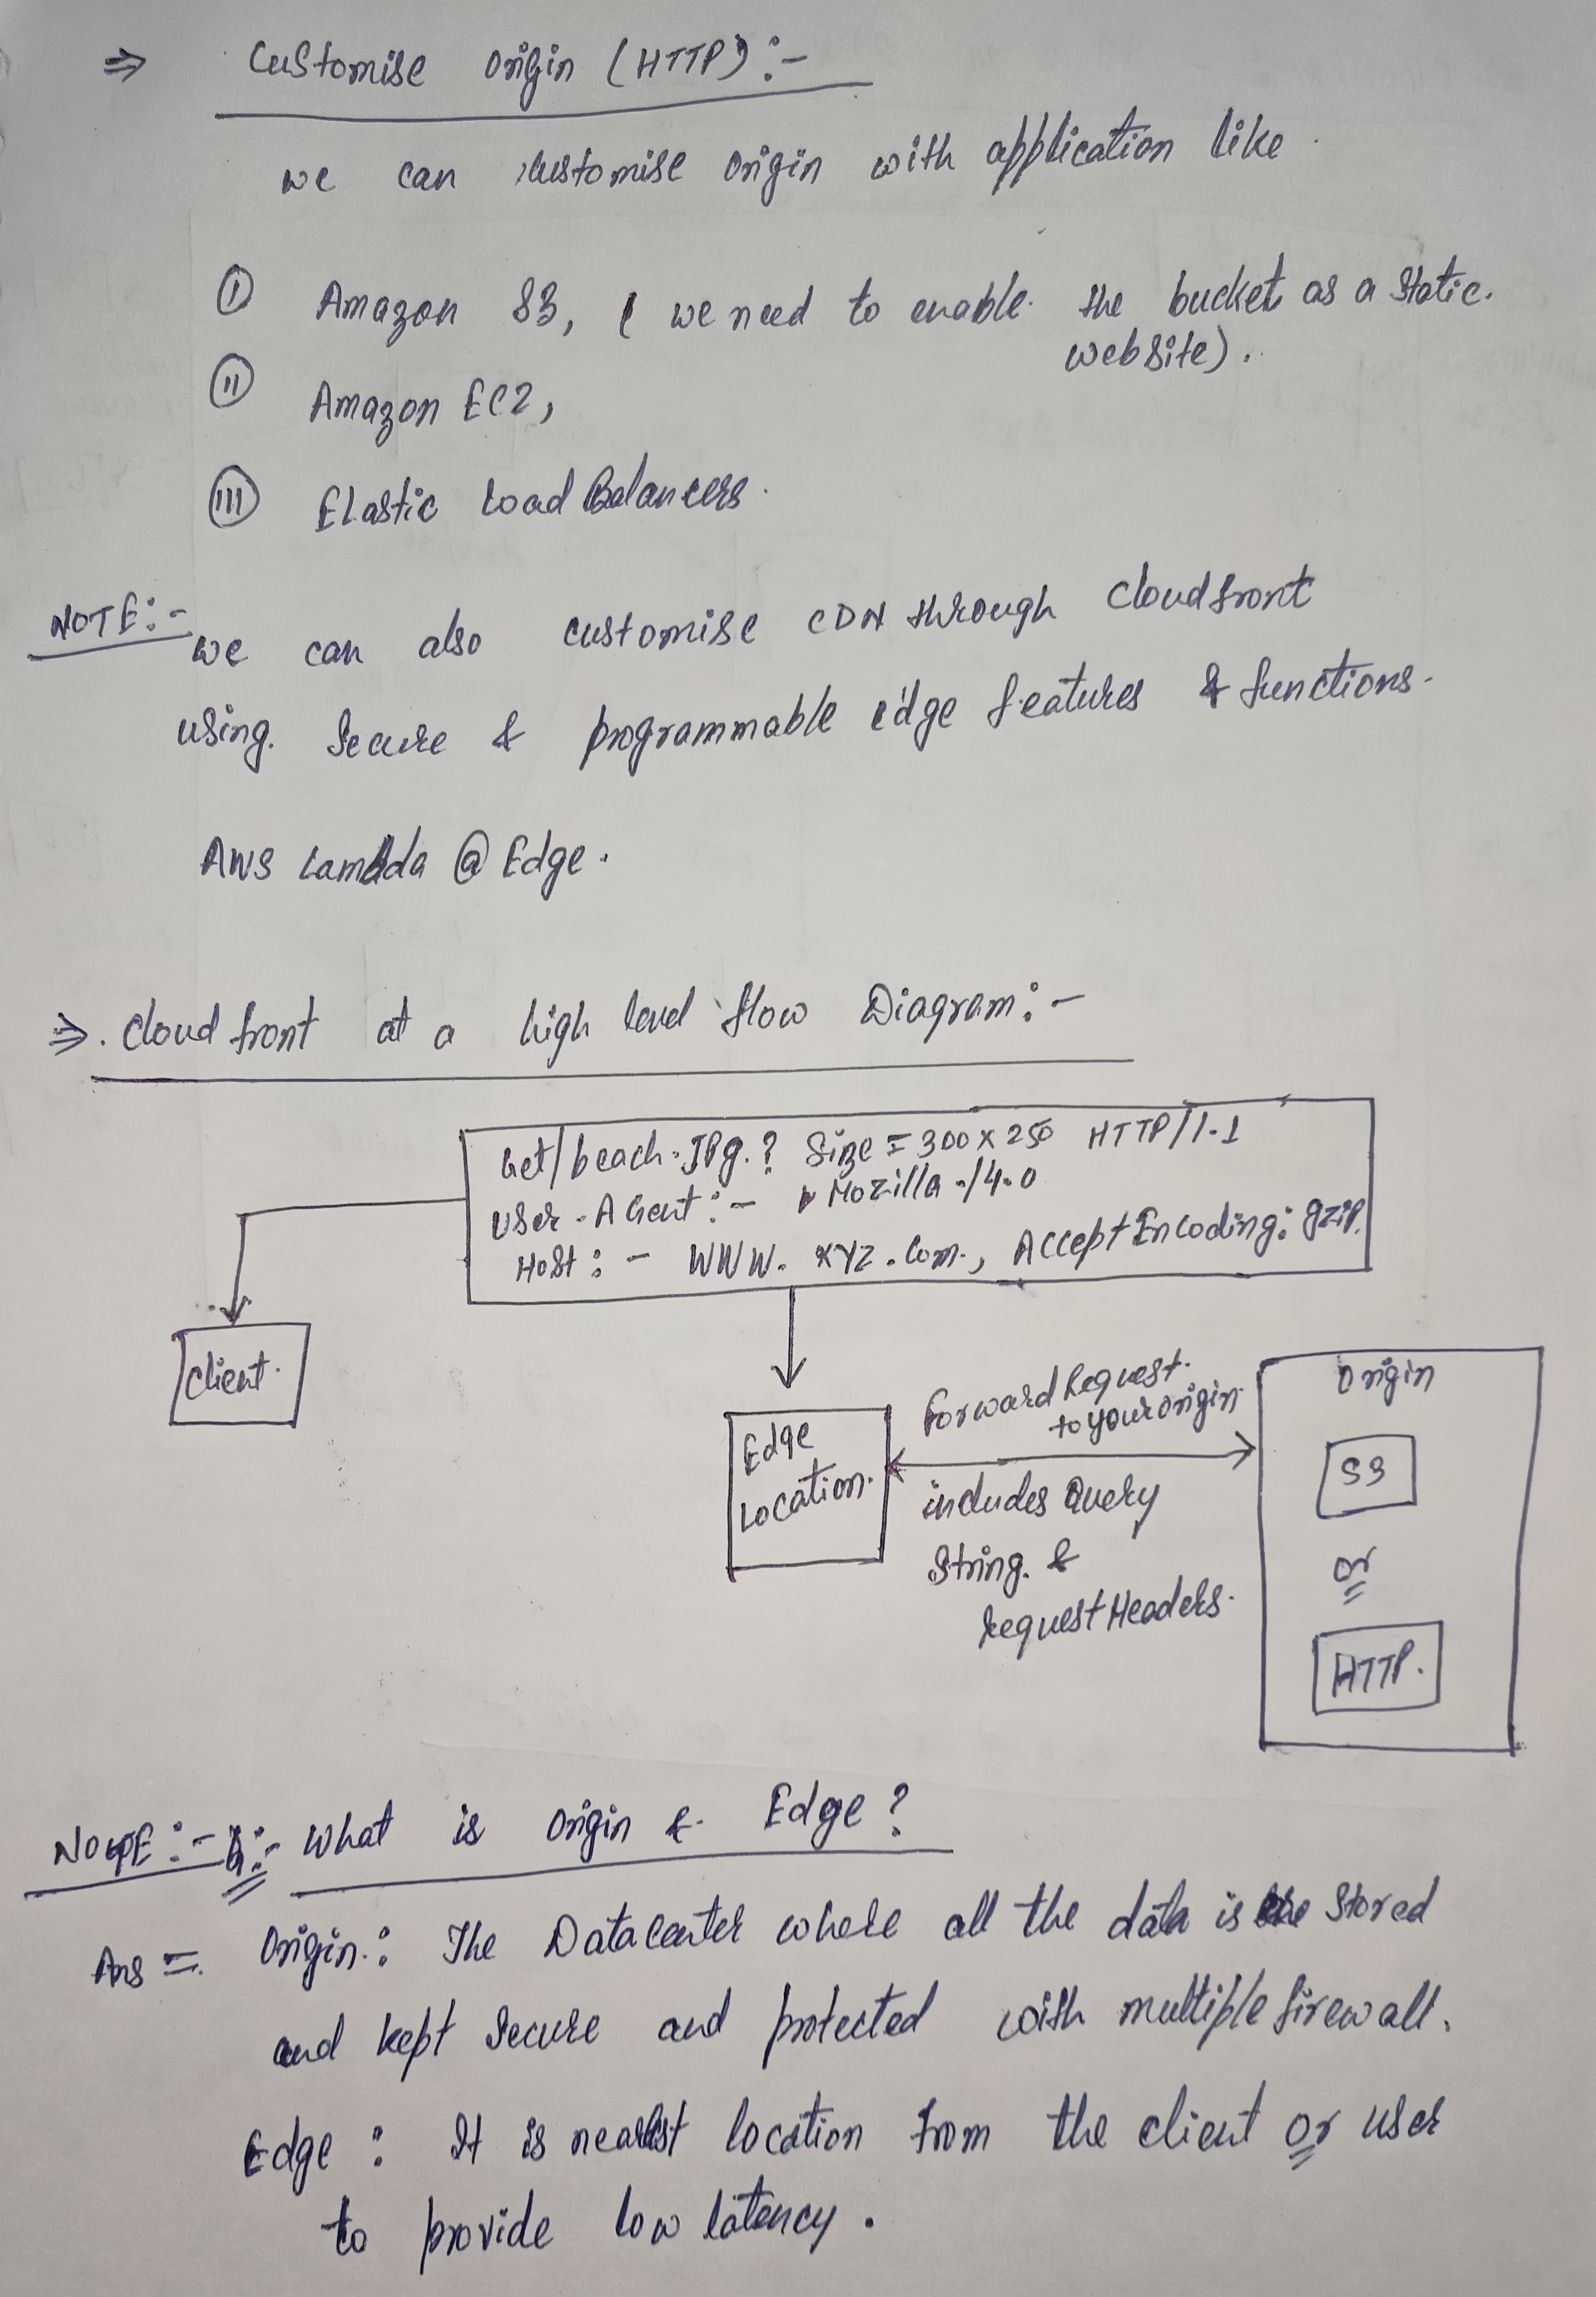 ⇒ Customise Origin (HTTP) :-
we can customise origin with application like
(I) Amazon S3, ( we need to enable the bucket as a static
website).
(II) Amazon EC2,
(III) Elastic Load Balancers.
NOTE:- we can also customise CDN through cloudfront
using secure & programmable edge features & functions.
AWS Lambda @ Edge.
⇒ Cloud front at a high level flow Diagram:-
Get/beach.JPg.? Size = 300 x 250 HTTP/1.1
User-Agent:- Mozilla/4.0
Host:- WWW. XYZ.Com., Accept Encoding: gzip.
client.
Edge
Location.
Forward Request.
to your origin.
includes Query
String. &
Request Headers.
Origin
S3
or
HTTP.
NOTE:- Q:- What is Origin & Edge?
Ans =. Origin.: The Datacenter where all the data is stored
and kept secure and protected with multiple firewall.
Edge : It is nearest location from the client or user
to provide low latency.